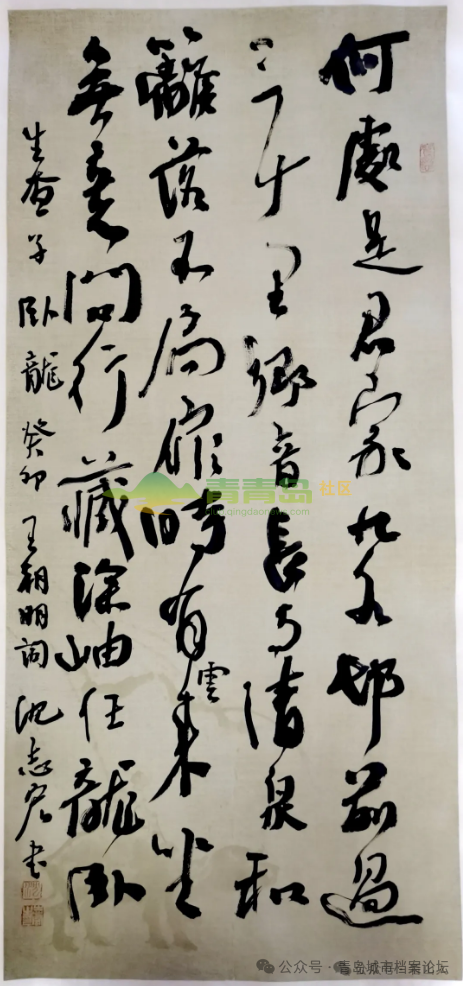 何處是君家九水邨前過
三十里鄉音長与清泉和
籬落不扃扉時有雲來坐
無意問行藏深岫任龍卧
生查子 卧龍 癸卯 王朝明詞 沈志宏书
青青岛社区
公众号·青岛城市档案论坛